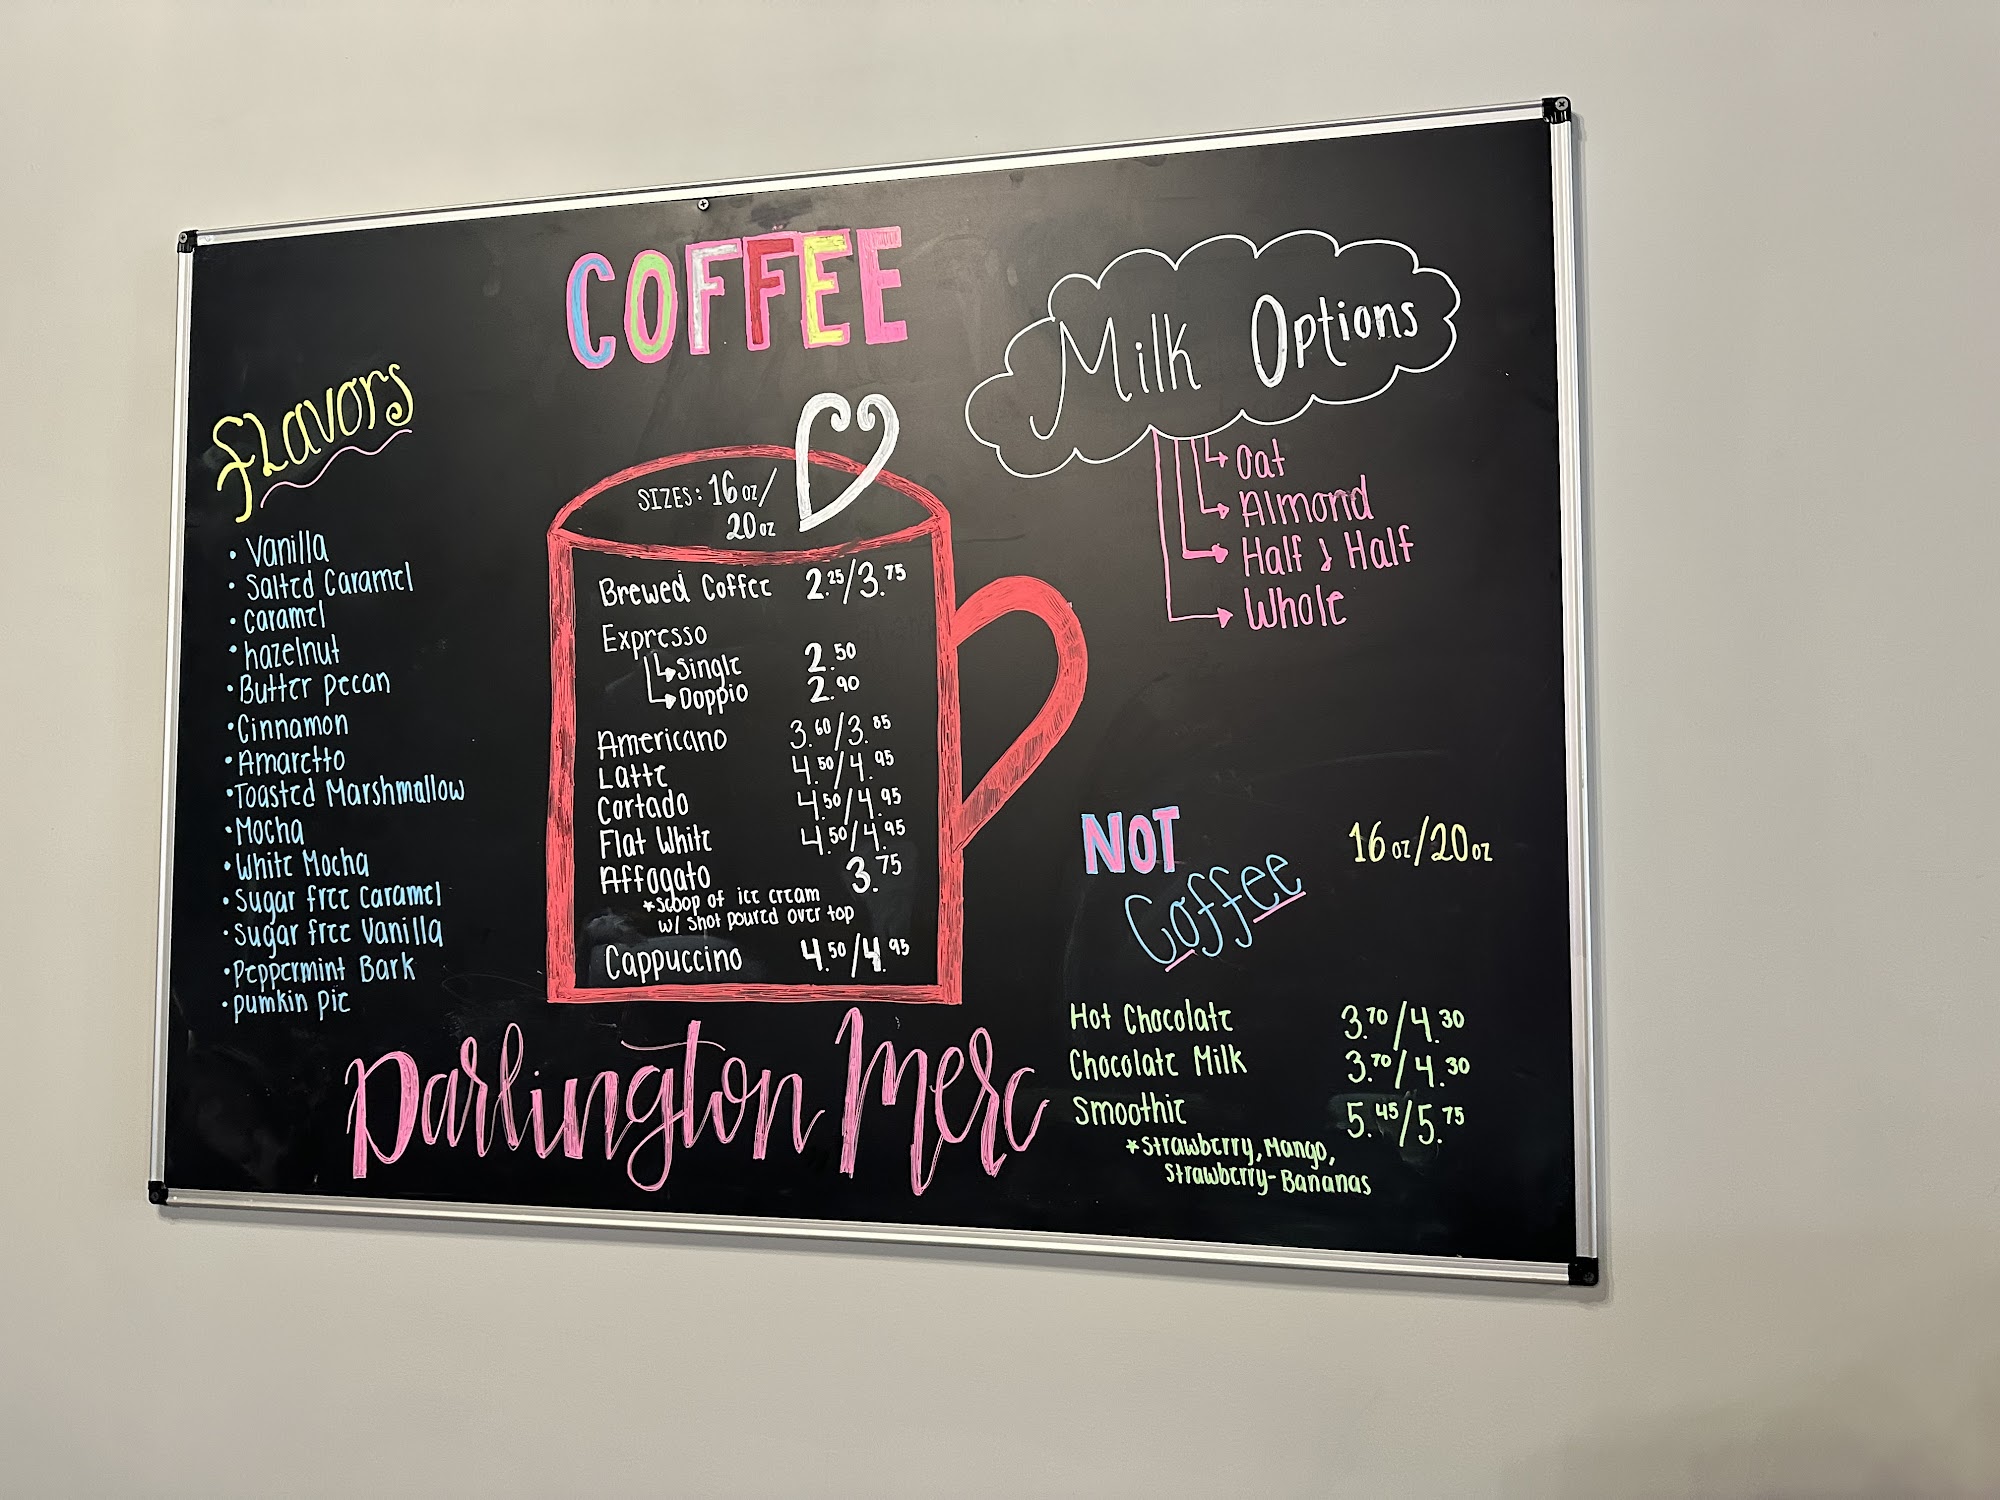 COFFEE
Flavors
• Vanilla
• Salted Caramel
• Caramel
• hazelnut
• Butter pecan
• Cinnamon
• Amaretto
• Toasted Marshmallow
• Mocha
• White Mocha
• Sugar free Caramel
• Sugar free Vanilla
• Peppermint Bark
• pumkin pie
SIZES: 16 oz/
20 oz
Brewed Coffee 2.25/3.75
Expresso
Single 2.50
Doppio 2.90
Americano 3.60/3.85
Latte 4.50/4.95
Cortado 4.50/4.95
Flat White 4.50/4.95
Affogato 3.75
*scoop of ice cream
w/ shot poured over top
Cappuccino 4.50/4.95
Milk Options
Oat
Almond
Half & Half
Whole
NOT 16 oz/20 oz
Coffee
Hot Chocolate 3.70/4.30
Chocolate Milk 3.70/4.30
Smoothie 5.45/5.75
*Strawberry, Mango,
Strawberry-Bananas
Darlington Merc